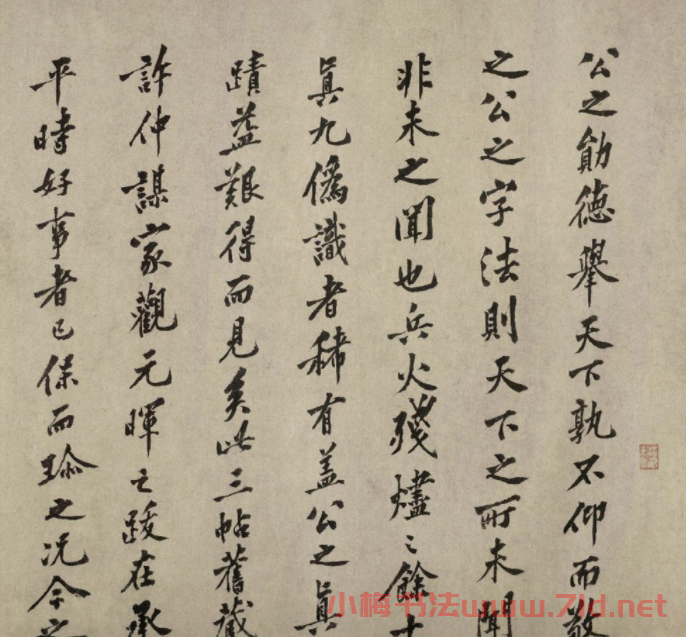 公之勛德舉天下孰不仰而敬
之公之字法則天下之所未聞
非未之聞也兵火殘燼之餘十
眞九僞識者稀有蓋公之眞
蹟益艱得而見矣此三帖舊藏
許仲謀家觀元暉之跋在承
平時好事者已保而珎之況今
小梅书法www.7ld.net